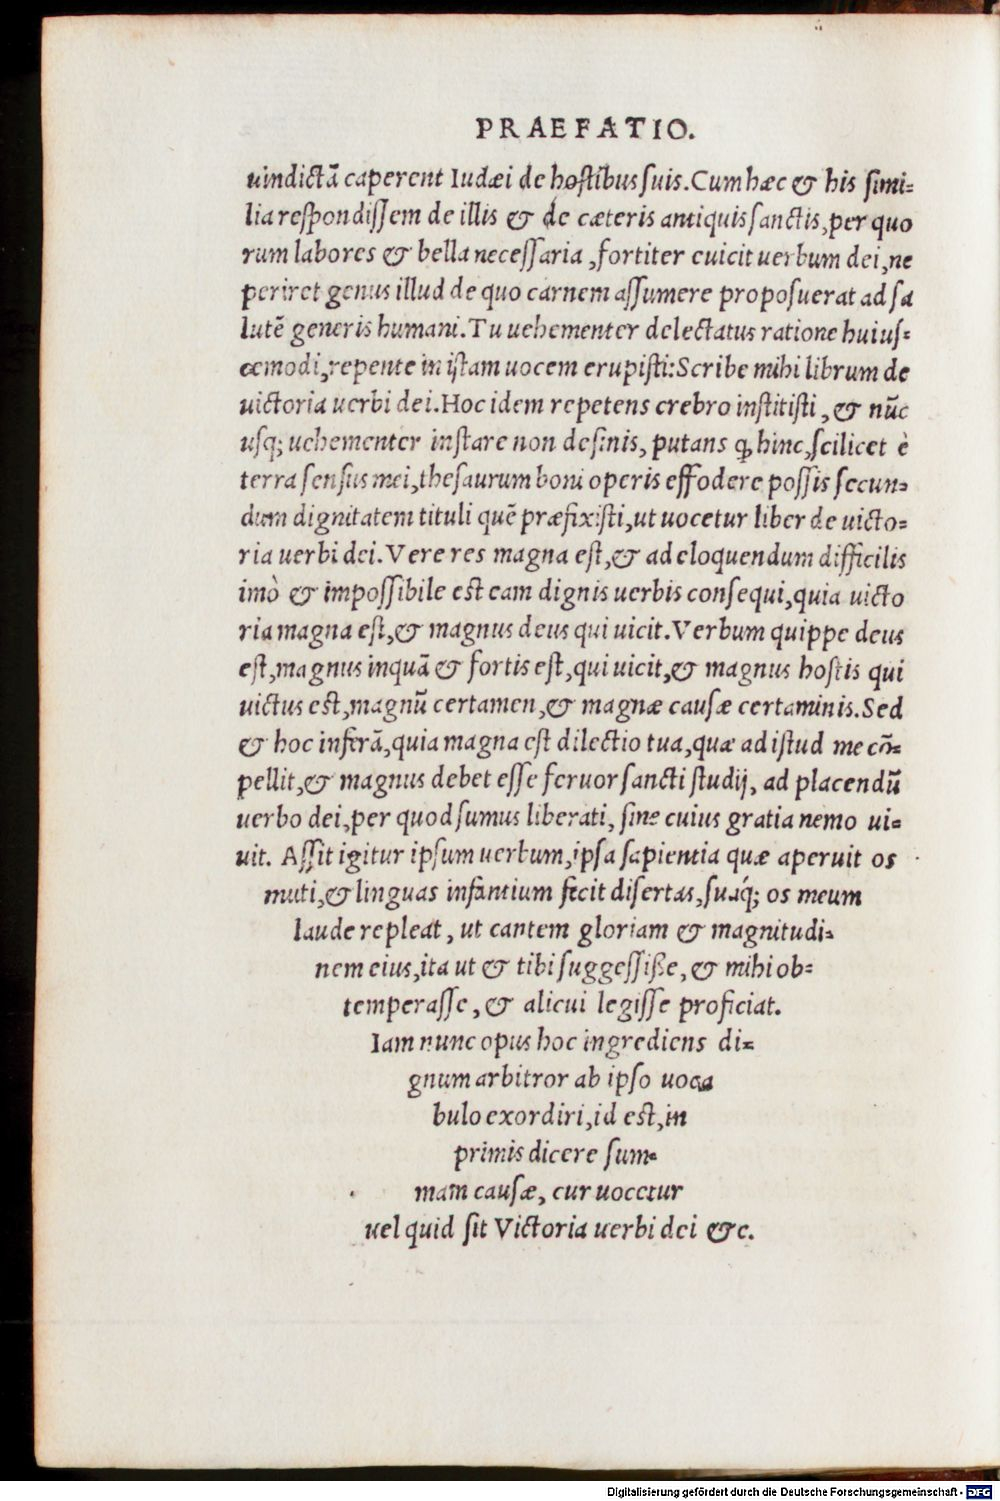 PRAEFATIO.
uindictã caperent Iudæi de hostibus suis. Cum hæc & his simi-
lia respondissem de illis & de cæteris antiquis sanctis, per quo
rum labores & bella necessaria, fortiter euicit uerbum dei, ne
periret genus illud de quo carnem assumere proposuerat ad sa
lutẽ generis humani. Tu uehementer delectatus ratione huius-
cemodi, repente in istam uocem erupisti: Scribe mihi librum de
uictoria uerbi dei. Hoc idem repetens crebro institisti, & nũc
usq; uehementer instare non desinis, putans ꝙ hinc, scilicet è
terra sensus mei, thesaurum boni operis effodere possis secun-
dum dignitatem tituli quẽ præfixisti, ut uocetur liber de uicto-
ria uerbi dei. Vere res magna est, & ad eloquendum difficilis
imò & impossibile est eam dignis uerbis consequi, quia uicto
ria magna est, & magnus deus qui uicit. Verbum quippe deus
est, magnus inquã & fortis est, qui uicit, & magnus hostis qui
uictus est, magnũ certamen, & magnæ causæ certaminis. Sed
& hoc inferã, quia magna est dilectio tua, quæ ad istud me cõ-
pellit, & magnus debet esse feruor sancti studij, ad placendũ
uerbo dei, per quod sumus liberati, sine cuius gratia nemo ui-
uit. Assit igitur ipsum uerbum, ipsa sapientia quæ aperuit os
muti, & linguas infantium fecit disertas, suáq; os meum
laude repleat, ut cantem gloriam & magnitudi-
nem eius, ita ut & tibi suggessiße, & mihi ob-
temperasse, & alicui legisse proficiat.
Iam nunc opus hoc ingrediens di-
gnum arbitror ab ipso uoca
bulo exordiri, id est, in
primis dicere sum-
mam causæ, cur uocetur
uel quid sit Victoria uerbi dei &c.
Digitalisierung gefördert durch die Deutsche Forschungsgemeinschaft - DFG